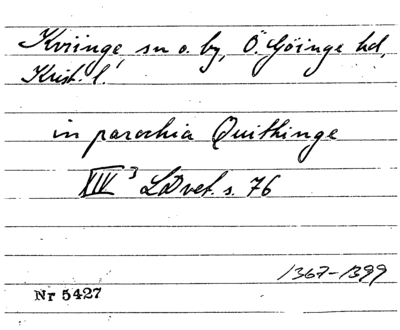 Kviinge, sn o. by, Ö. Göinge hd,
Krist. l.
in parochia Quithinge
XIV³ LDvet. s. 76
1367-1399
Nr 5427